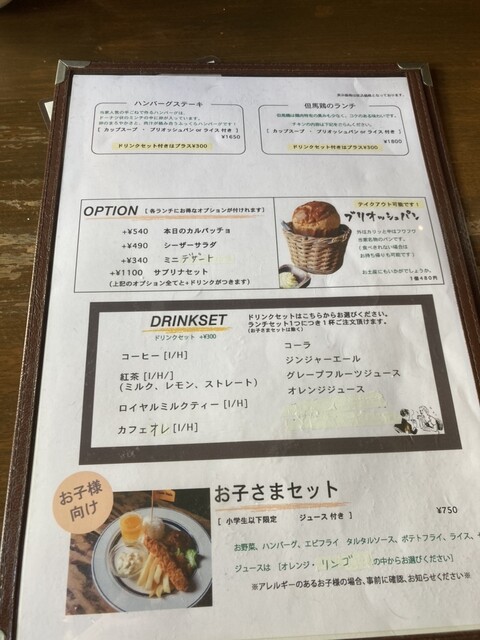 ハンバーグステーキ
¥1650
[ カップスープ ・ ブリオッシュパン or ライス 付き ]
ドリンクセット付きはプラス¥300
但馬鶏のランチ
[ カップスープ ・ ブリオッシュパン or ライス 付き ]
¥1800
ドリンクセット付きはプラス¥300
OPTION [ 各ランチにお得なオプションが付けれます]
+¥540 本日のカルパッチョ
+¥490 シーザーサラダ
+¥340 ミニ デザート
+¥1100 サブリナセット
(上記のオプション全てと+ドリンクがつきます)
テイクアウト可能です！
ブリオッシュパン
外はカリッと中はフワフワ
当店名物のパンです。
(食べきれない場合は
お持ち帰りも可能です)
お土産にもいかがでしょうか。
1個480円
DRINKSET
ドリンクセット +¥300
ドリンクセットはこちらからお選びください。
ランチセット1つにつき1杯ご注文頂けます。
(お子さまセットは除く)
コーヒー [I/H]
紅茶 [I/H/]
(ミルク、レモン、ストレート)
ロイヤルミルクティー [I/H]
カフェオレ [I/H]
コーラ
ジンジャーエール
グレープフルーツジュース
オレンジジュース
お子様
向け
お子さまセット
[ 小学生以下限定 ジュース 付き ]
¥750
お野菜、ハンバーグ、エビフライ タルタルソース、ポテトフライ、ライス、
ジュースは [オレンジ・リンゴ の中からお選びください]
※アレルギーのあるお子様の場合、事前に確認、お知らせください※